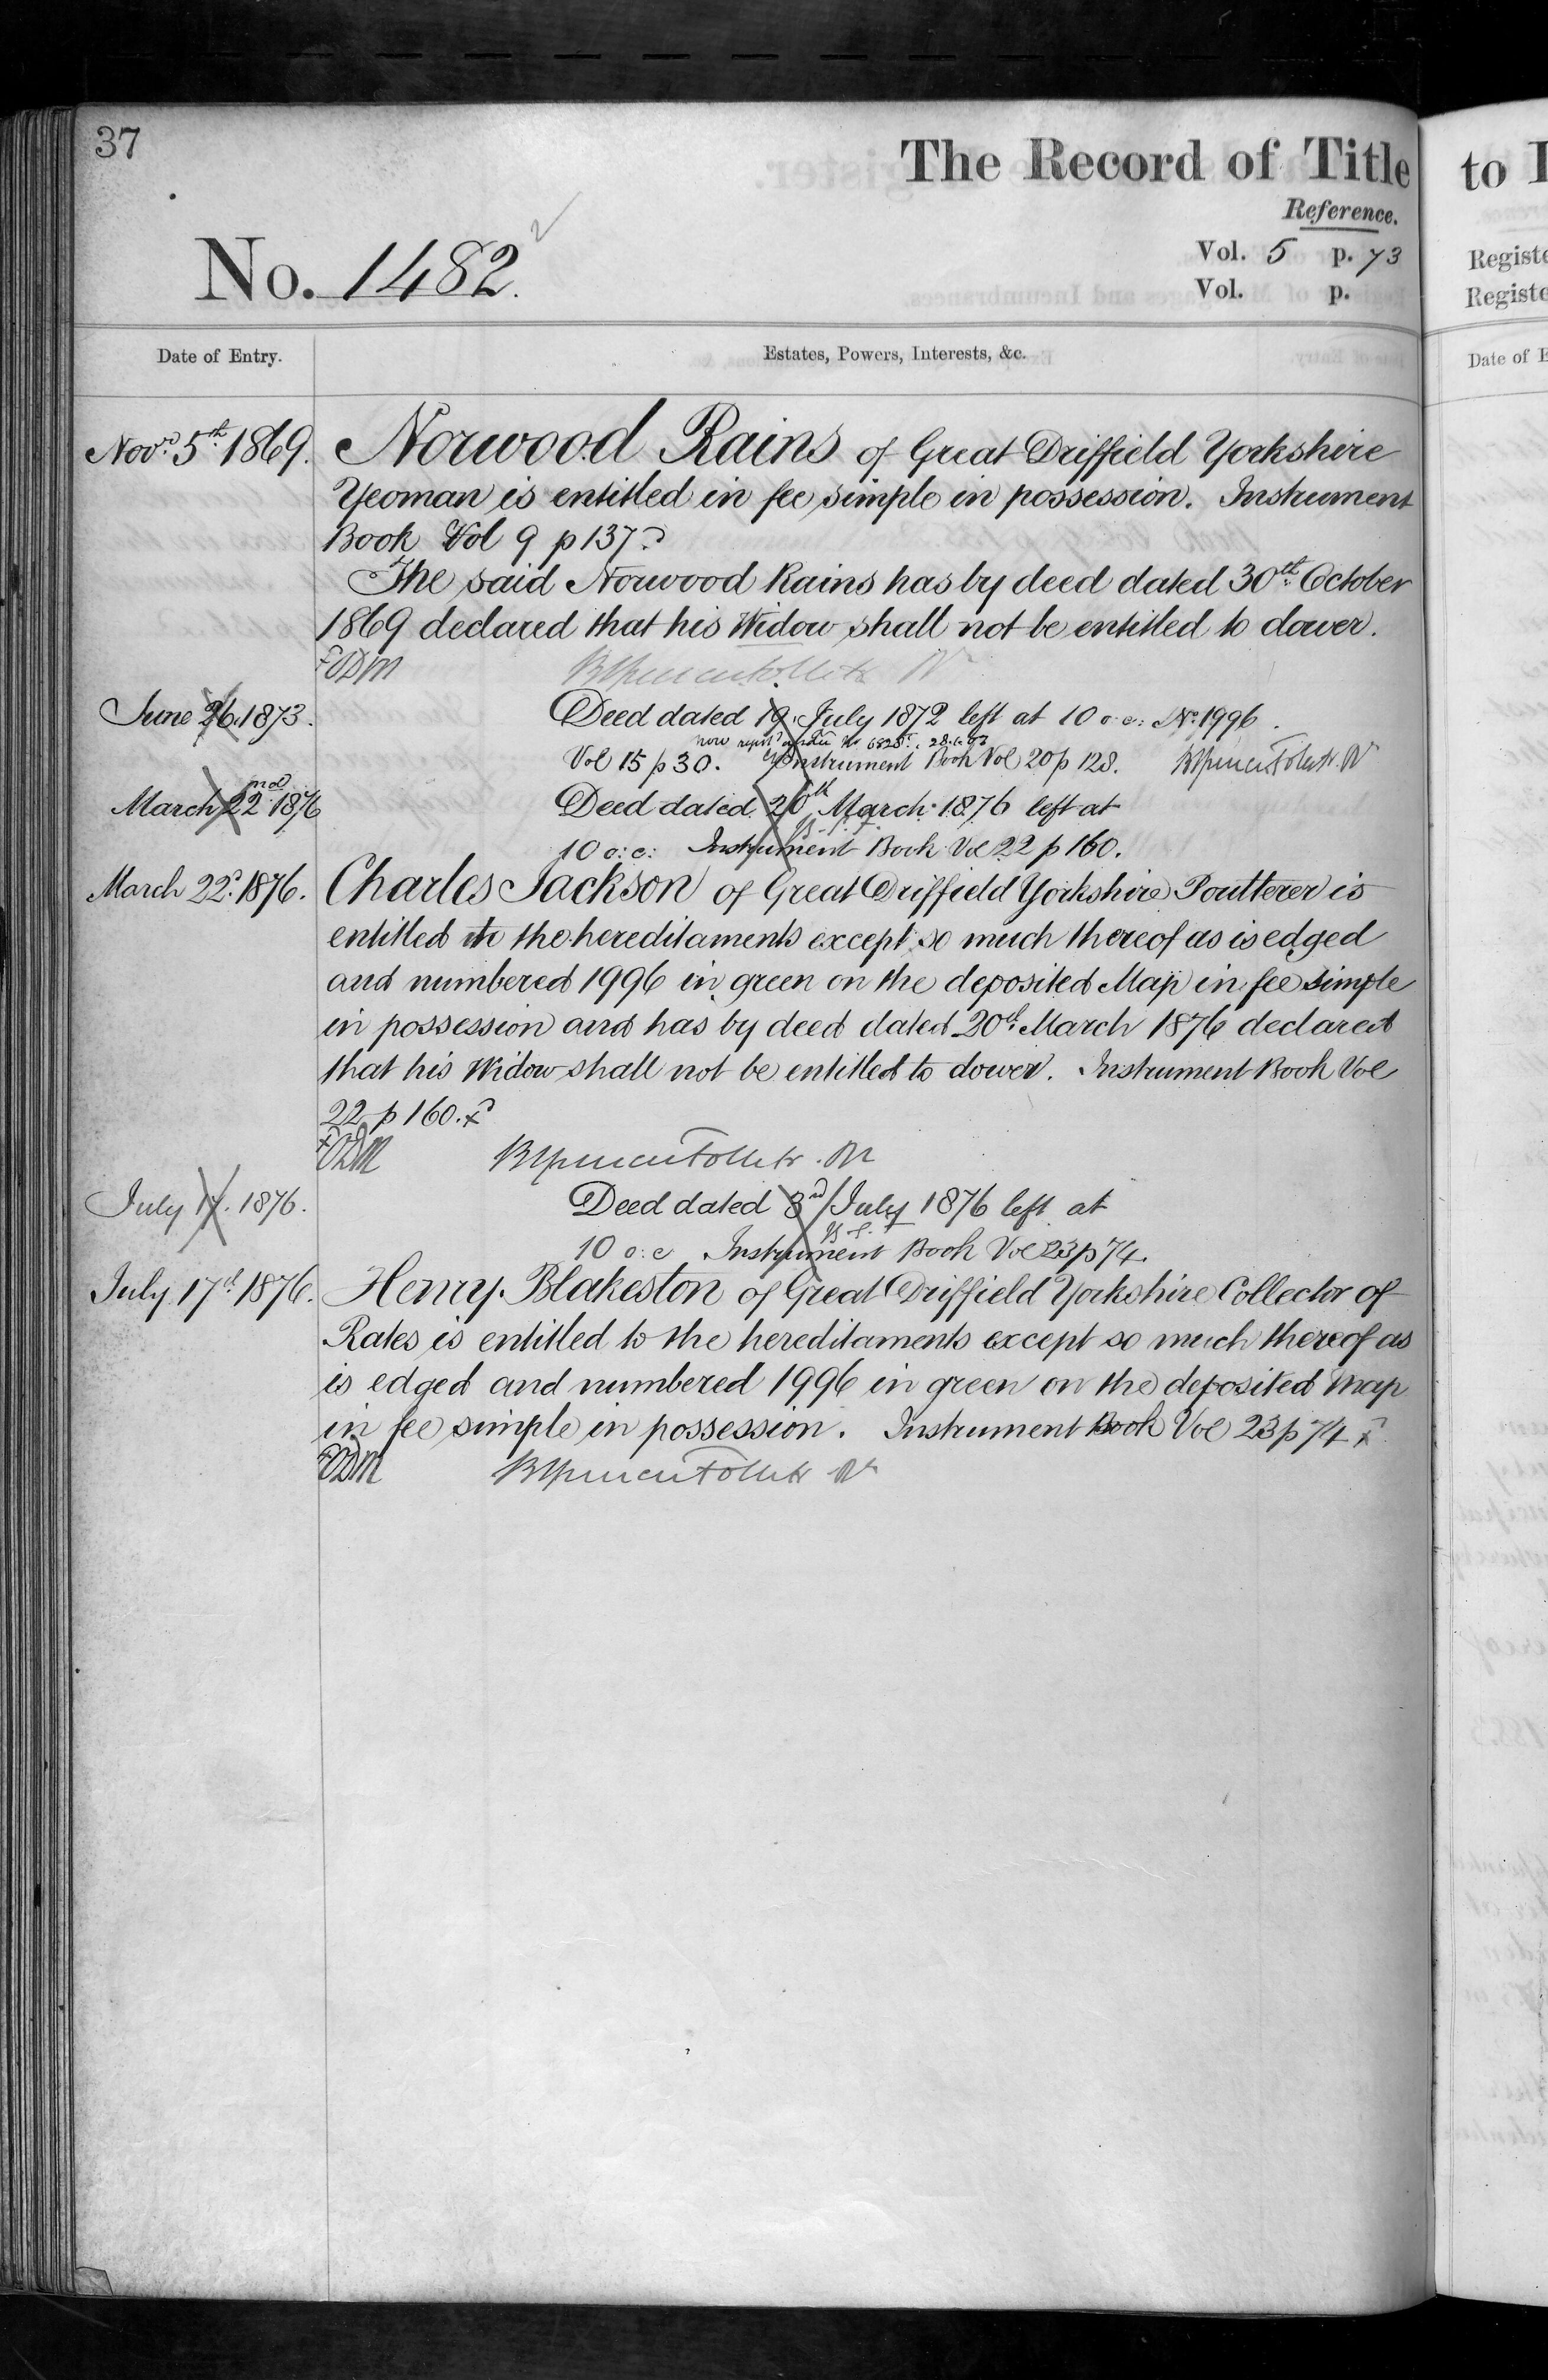 37
The Record of Title
Reference.
No. 1482.
Vol. 5 p. 73
Vol. p.
Date of Entry.
Estates, Powers, Interests, &c.
Novr. 5th 1869. Norwood Rains of Great Driffield Yorkshire
Yeoman is entitled in fee simple in possession. Instrument
Book Vol 9 p 137
The said Norwood Rains has by deed dated 30th October
1869 declared that his Widow shall not be entitled to dower.
June 26. 1873. Deed dated 19. July 1872 left at 10 o:c: No. 1996.
now regist'd under No. 6828
Vol 15 p 30. Instrument Book Vol 20 p 128.
March 22nd 1876 Deed dated 20th March 1876 left at
10 o:c: Instrument Book Vol 22 p 160.
March 22d. 1876. Charles Jackson of Great Driffield Yorkshire Poulterer is
entitled to the hereditaments except so much thereof as is edged
and numbered 1996 in green on the deposited Map in fee simple
in possession and has by deed dated 20th March 1876 declared
that his Widow shall not be entitled to dower. Instrument Book Vol
22 p 160.
July 17. 1876. Deed dated 3rd July 1876 left at
10 o:c Instrument Book Vol 23 p 74.
July 17th 1876. Henry Blakeston of Great Driffield Yorkshire Collector of
Rates is entitled to the hereditaments except so much thereof as
is edged and numbered 1996 in green on the deposited Map
in fee simple in possession. Instrument Book Vol 23 p 74
to
Registe
Registe
Date of E